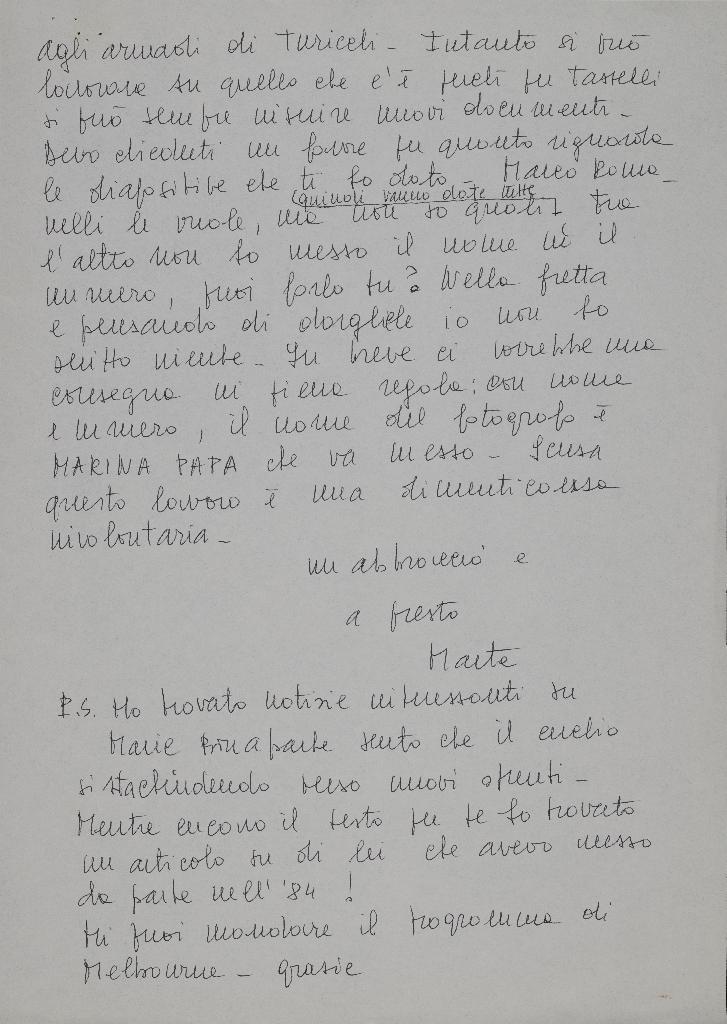 agli armadi di Turiceli - Intanto si può
lavorare su quello che c'è perché per tasselli
si può sempre inserire nuovi documenti -
Devo chiederti un favore per quanto riguarda
le diapositive che ti ho dato - Marco Roma-
(quindi vanno date tutte)
nelli le vuole, ma non so quali, tra
l'altro non ho messo il nome nè il
numero, puoi farlo tu? Nella fretta
e pensando di dargliele io non ho
scritto niente - In breve ci vorrebbe una
consegna in piena regola: con nome
e numero, il nome del fotografo è
MARINA PAPA che va messo - Scusa
questo lavoro è una dimenticanza
involontaria -
un abbraccio e
a presto
P.S. Ho trovato notizie interessanti su
Marie Bonaparte sento che il cerchio
si sta chiudendo verso nuovi spunti -
Mentre cercavo il testo per te ho trovato
un articolo su di lei che avevo messo
da parte nell' '84 !
Mi puoi mandare il programma di
Melbourne - grazie